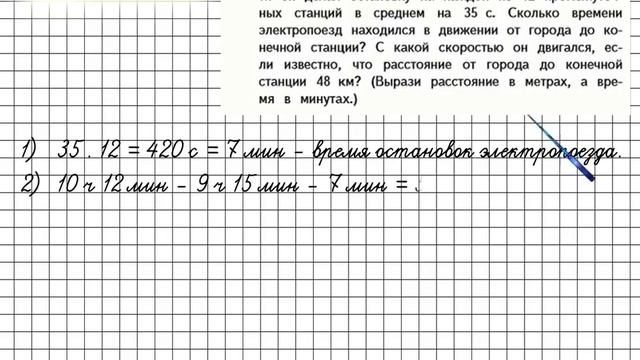 ных станций в среднем на 35 с. Сколько времени
электропоезд находился в движении от города до ко-
нечной станции? С какой скоростью он двигался, ес-
ли известно, что расстояние от города до конечной
станции 48 км? (Вырази расстояние в метрах, а вре-
мя в минутах.)
1) 35 . 12 = 420 с = 7 мин – время остановок электропоезда.
2) 10 ч 12 мин – 9 ч 15 мин – 7 мин =